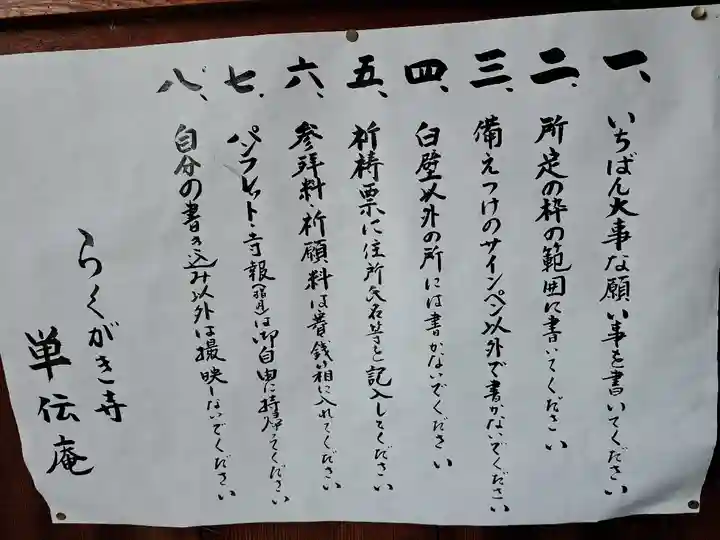 一、いちばん大事な願い事を書いてください
二、所定の枠の範囲に書いてください
三、備えつけのサインペン以外で書かないでください
四、白壁以外の所には書かないでください
五、祈祷票に住所氏名等を記入してください
六、参拝料・祈願料は賽銭箱に入れてください
七、パンフレット・寺報は御自由に持帰ってください
八、自分の書き込み以外は撮映しないでください
らくがき寺
単伝庵